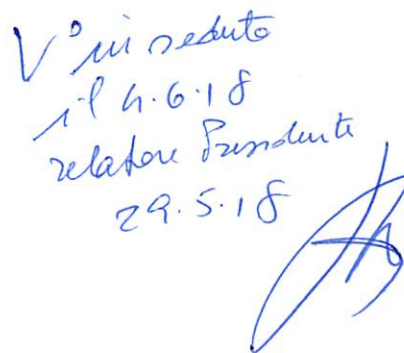 V° in seduta
il 4.6.18
relatore Presidente
29.5.18